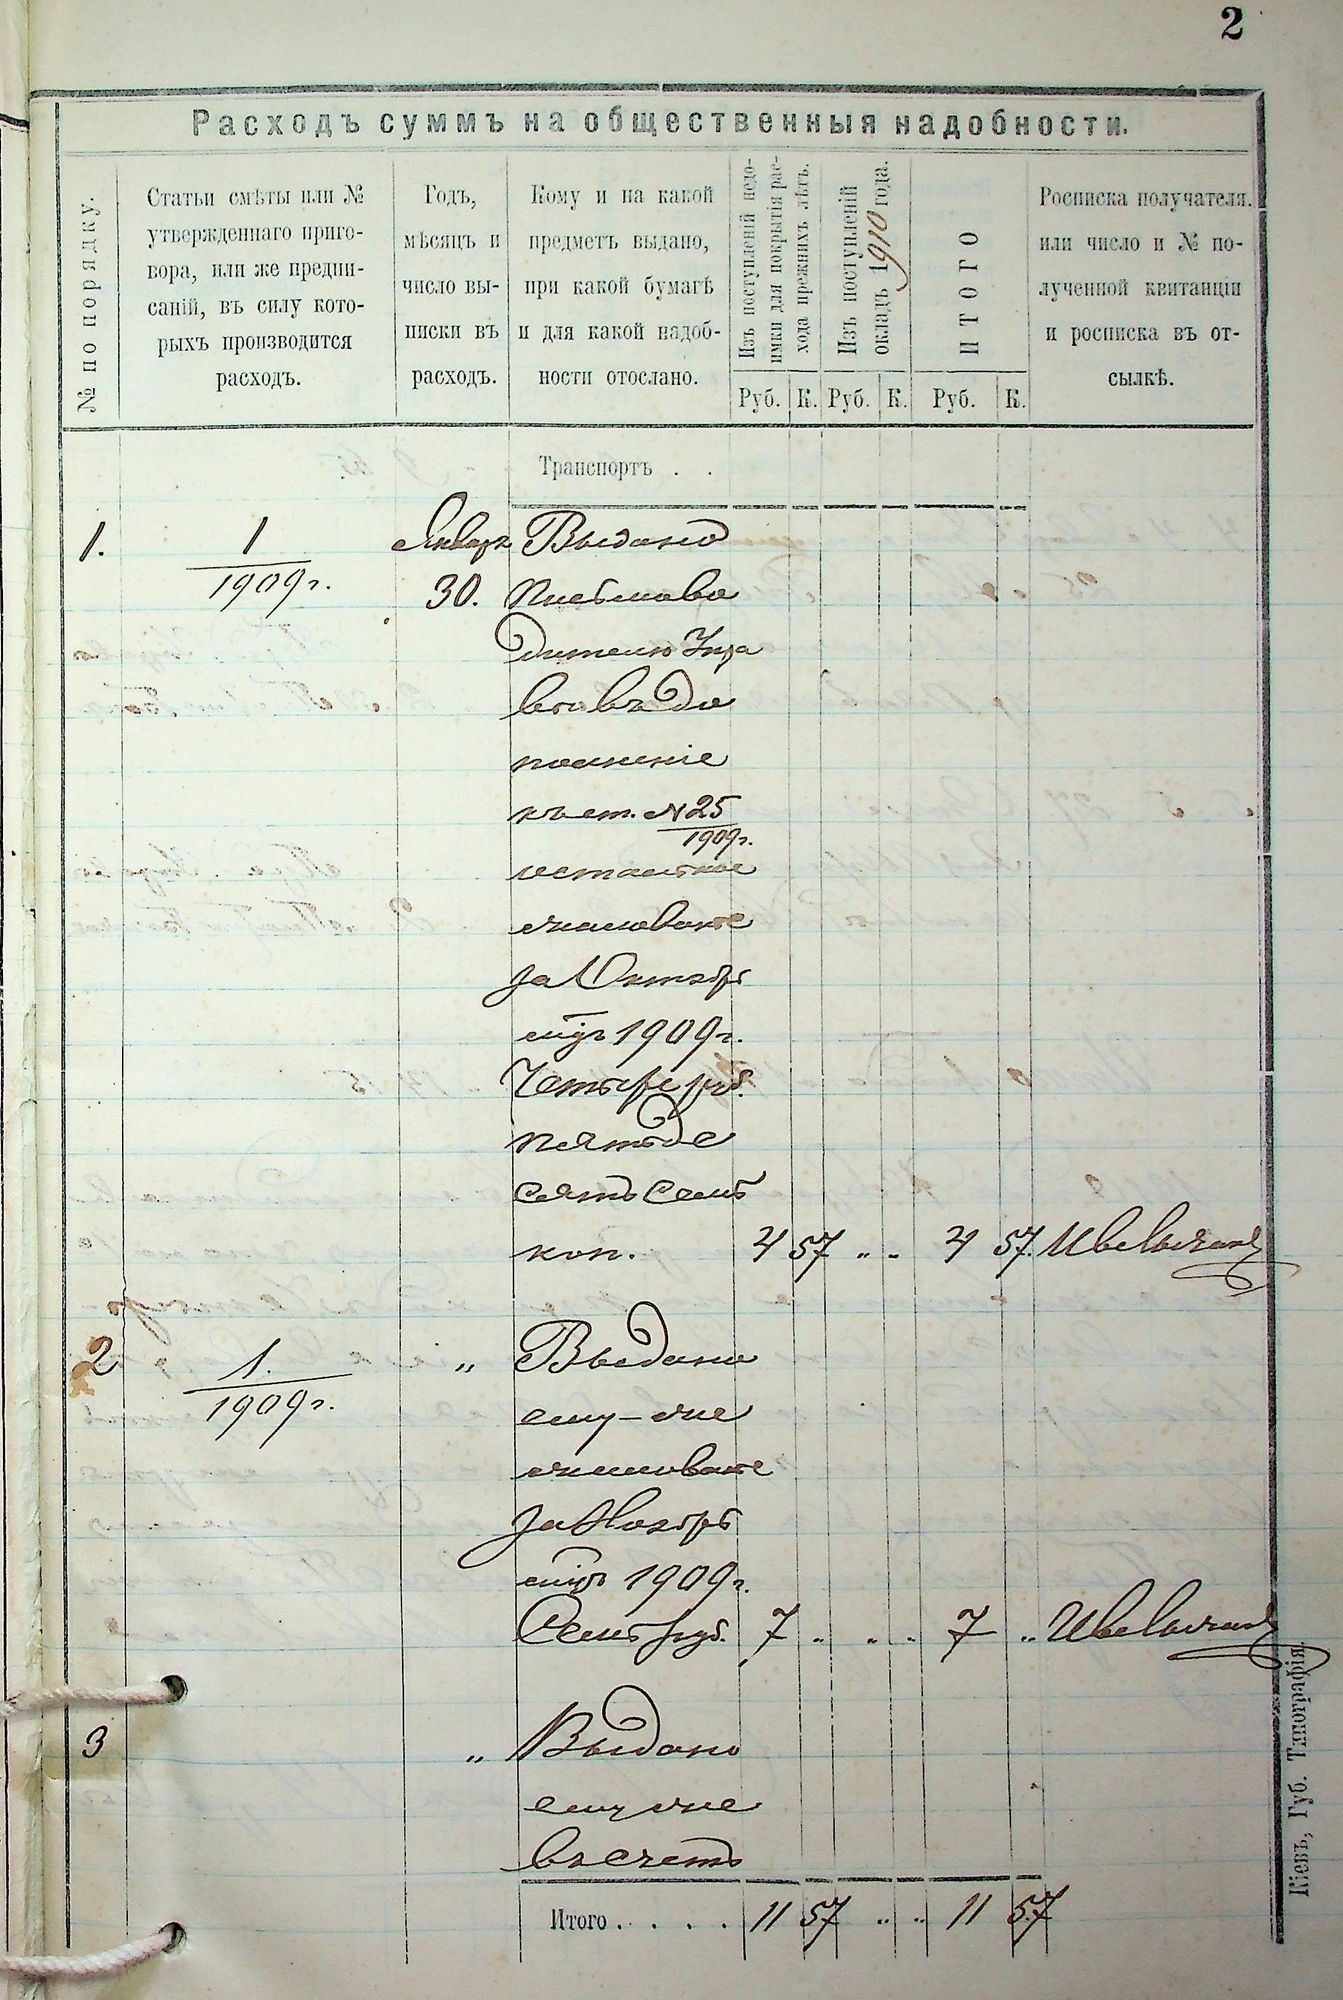 2
Расходъ суммъ на общественныя надобности.
№ по порядку.
Статьи смѣты или №
утвержденнаго приго-
вора, или же предпи-
саній, въ силу кото-
рыхъ производится
расходъ.
Годъ,
мѣсяцъ и
число вы-
писки въ
расходъ.
Кому и на какой
предметъ выдано,
при какой бумагѣ
и для какой надоб-
ности отослано.
Изъ поступленій недо-
имки для покрытія рас-
хода прежнихъ лѣтъ.
Изъ поступленій
окладъ 1910 года.
ИТОГО
Руб. К. Руб. К. Руб. К.
Росписка получателя.
или число и № по-
лученной квитанціи
и росписка въ от-
сылкѣ.
Транспортъ . .
1. 1 Январь Выдано
1909 г. 30. Письмово
дителю Упра
вы въ до
полненіе
къ ст. № 25
1909 г.
остальное
жалованье
за Октябрь
мцъ 1909 г.
Четыре руб.
пятьде
сятъ семь
коп. 4 57 „ „ 4 57.
2 1. „ Выдано
1909 г. ему-же
жалованье
за Ноябрь
мцъ 1909 г.
Семь руб. 7 „ „ „ 7 „
3 „ Выдано
ему же
въ счетъ
Итого . . . . 11 57 „ „ 11 57
Кіевъ, Губ. Типографія.